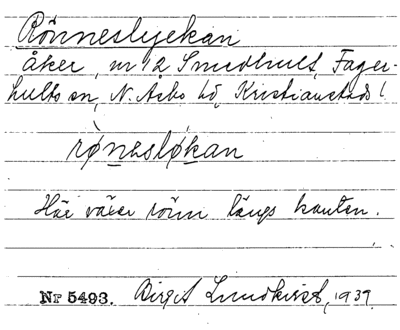 Rönneslyckan
åker, nr 12 Smedhult, Fager-
hults sn, N. Åsbo hd, Kristianstads l
rø̀nesløkan
Här växer rönn längs kanten.
Nr 5493. Birgit Lundkvist, 1939